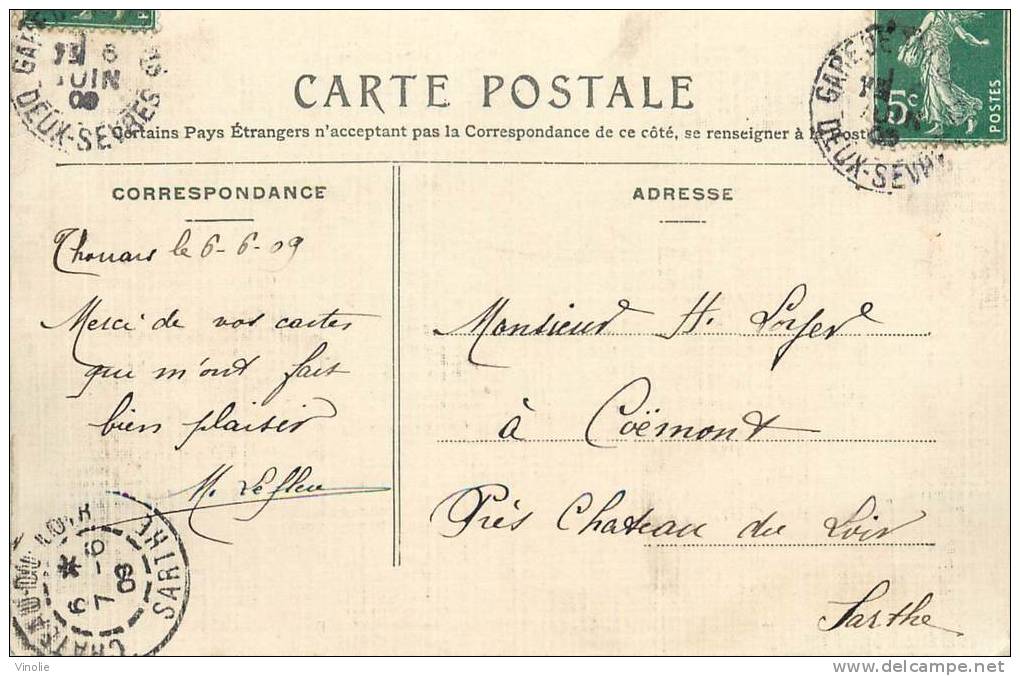 GARE DE
6
JUIN
09
DEUX-SEVRES
5c
POSTES
GARE DE
JUIN
DEUX-SEVRES
CARTE POSTALE
Certains Pays Étrangers n'acceptant pas la Correspondance de ce côté, se renseigner à la Poste
CORRESPONDANCE
ADRESSE
Thouars le 6-6-09
Merci de vos cartes
que m'ont fait
bien plaisir
Monsieur H. Loyer
à Coëmont
Près Chateau du Loir
Sarthe
CHATEAU-DU-LOIR
SARTHE
* 7-6
09
Vinolie
delcampe.net